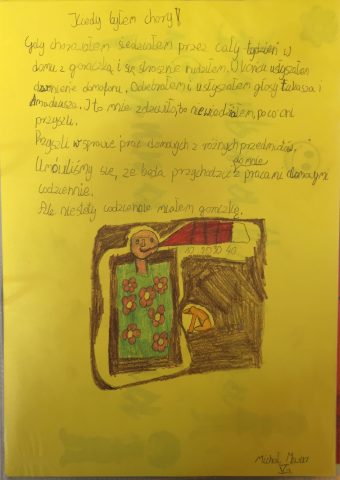 Kiedy byłem chory!
Gdy chorowałem siedziałem przez cały tydzień w
domu z gorączką i się strasznie nudziłem. I w końcu usłyszałem
dzwonienie domofonu. Odebrałem i usłyszałem głosy Łukasza i
Amadeusza. I to mnie zdziwiło, bo nie wiedziałem, po co oni
przyszli.
Przyszli w sprawie prac domowych z różnych przedmiotów.
Umówiliśmy się, że będą przychodzić do mnie z pracami domowymi
codziennie.
Ale niestety codziennie miałem gorączkę.
10 20 30 40
Michał
V